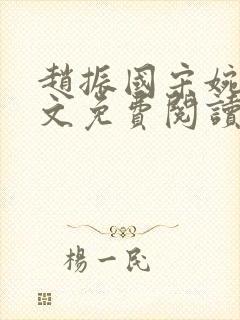 趙振國宋婉
文免費閱讀
楊一民